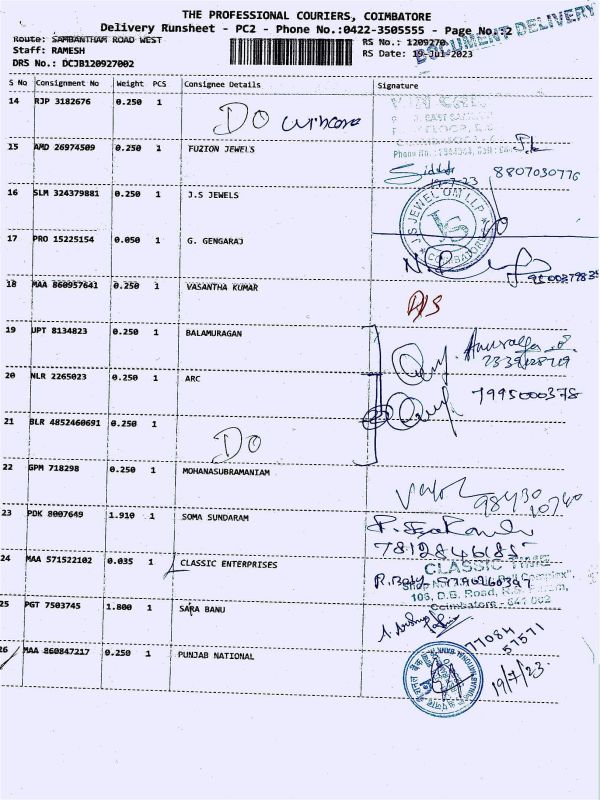 THE PROFESSIONAL COURIERS, COIMBATORE
Delivery Runsheet - PC2 - Phone No.:0422-3505555 - Page No.:2
DOCUMENT DELIVERY
Route: SAMBANTHAM ROAD WEST
RS No.: 1209270
Staff: RAMESH
RS Date: 19-Jul-2023
DRS No.: DCJB120927002
S No Consignment No Weight PCS Consignee Details Signature
14 RJP 3182676 0.250 1 DO
15 AMD 26974509 0.250 1 FUZION JEWELS
8807030776
16 SLM 324379881 0.250 1 J.S JEWELS
J.S JEWEL OM LLP
COIMBATORE
17 PRO 15225154 0.050 1 G. GENGARAJ
18 MAA 860957641 0.250 1 VASANTHA KUMAR
D/S
19 UPT 8134823 0.250 1 BALAMURAGAN
20 NLR 2265023 0.250 1 ARC
7995000378
21 BLR 4852460691 0.250 1 DO
22 GPM 718298 0.250 1 MOHANASUBRAMANIAM
98430
10740
23 PDK 8007649 1.910 1 SOMA SUNDARAM
24 MAA 571522102 0.035 1 CLASSIC ENTERPRISES
CLASSIC TIME
Complex",
106, D.B. Road, R.S. Puram,
Coimbatore - 641 002
25 PGT 7503745 1.800 1 SARA BANU
77084
57571
26 MAA 860847217 0.250 1 PUNJAB NATIONAL
19/7/23.